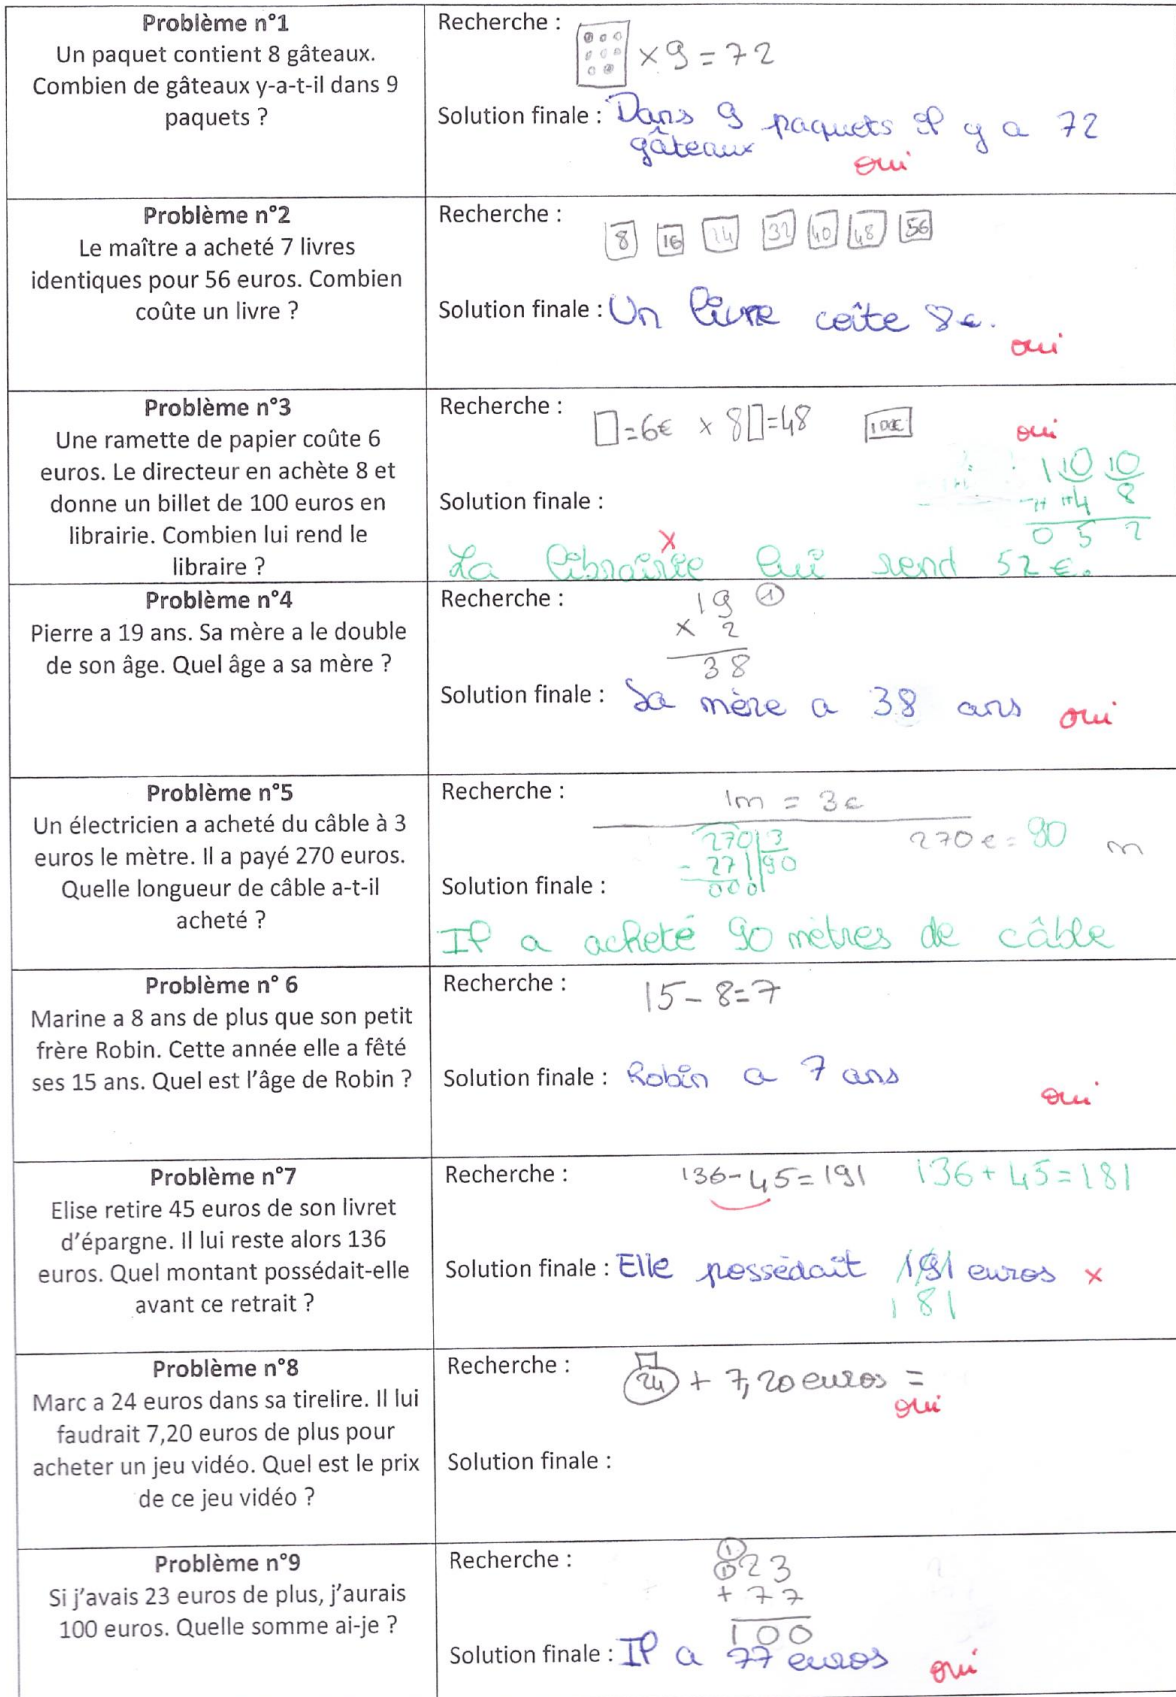 Problème n°1
Un paquet contient 8 gâteaux.
Combien de gâteaux y-a-t-il dans 9
paquets ?
Recherche :
× 9 = 72
Solution finale : Dans 9 paquets il y a 72
gâteaux
oui
Problème n°2
Le maître a acheté 7 livres
identiques pour 56 euros. Combien
coûte un livre ?
Recherche :
8 16 24 32 40 48 56
Solution finale : Un livre coîte 8€.
oui
Problème n°3
Une ramette de papier coûte 6
euros. Le directeur en achète 8 et
donne un billet de 100 euros en
librairie. Combien lui rend le
libraire ?
Recherche :
=6€ × 8 =48 100€
oui
1 10 10
- 1+ 1+4 8
0 5 2
Solution finale :
x
La librairie lui rend 52 €.
Problème n°4
Pierre a 19 ans. Sa mère a le double
de son âge. Quel âge a sa mère ?
Recherche :
19 1
× 2
38
Solution finale : Sa mère a 38 ans oui
Problème n°5
Un électricien a acheté du câble à 3
euros le mètre. Il a payé 270 euros.
Quelle longueur de câble a-t-il
acheté ?
Recherche :
1m = 3€
270 3 270€ = 90 m
- 27 90
000
Solution finale :
Il a acheté 90 mètres de câble
Problème n° 6
Marine a 8 ans de plus que son petit
frère Robin. Cette année elle a fêté
ses 15 ans. Quel est l'âge de Robin ?
Recherche :
15 - 8 = 7
Solution finale : Robin a 7 ans
oui
Problème n°7
Elise retire 45 euros de son livret
d'épargne. Il lui reste alors 136
euros. Quel montant possédait-elle
avant ce retrait ?
Recherche :
136-45=191 136+45=181
Solution finale : Elle possédait 191 euros x
181
Problème n°8
Marc a 24 euros dans sa tirelire. Il lui
faudrait 7,20 euros de plus pour
acheter un jeu vidéo. Quel est le prix
de ce jeu vidéo ?
Recherche :
24 + 7,20 euros =
oui
Solution finale :
Problème n°9
Si j'avais 23 euros de plus, j'aurais
100 euros. Quelle somme ai-je ?
Recherche :
1
1 23
+ 77
100
Solution finale : Il a 77 euros oui